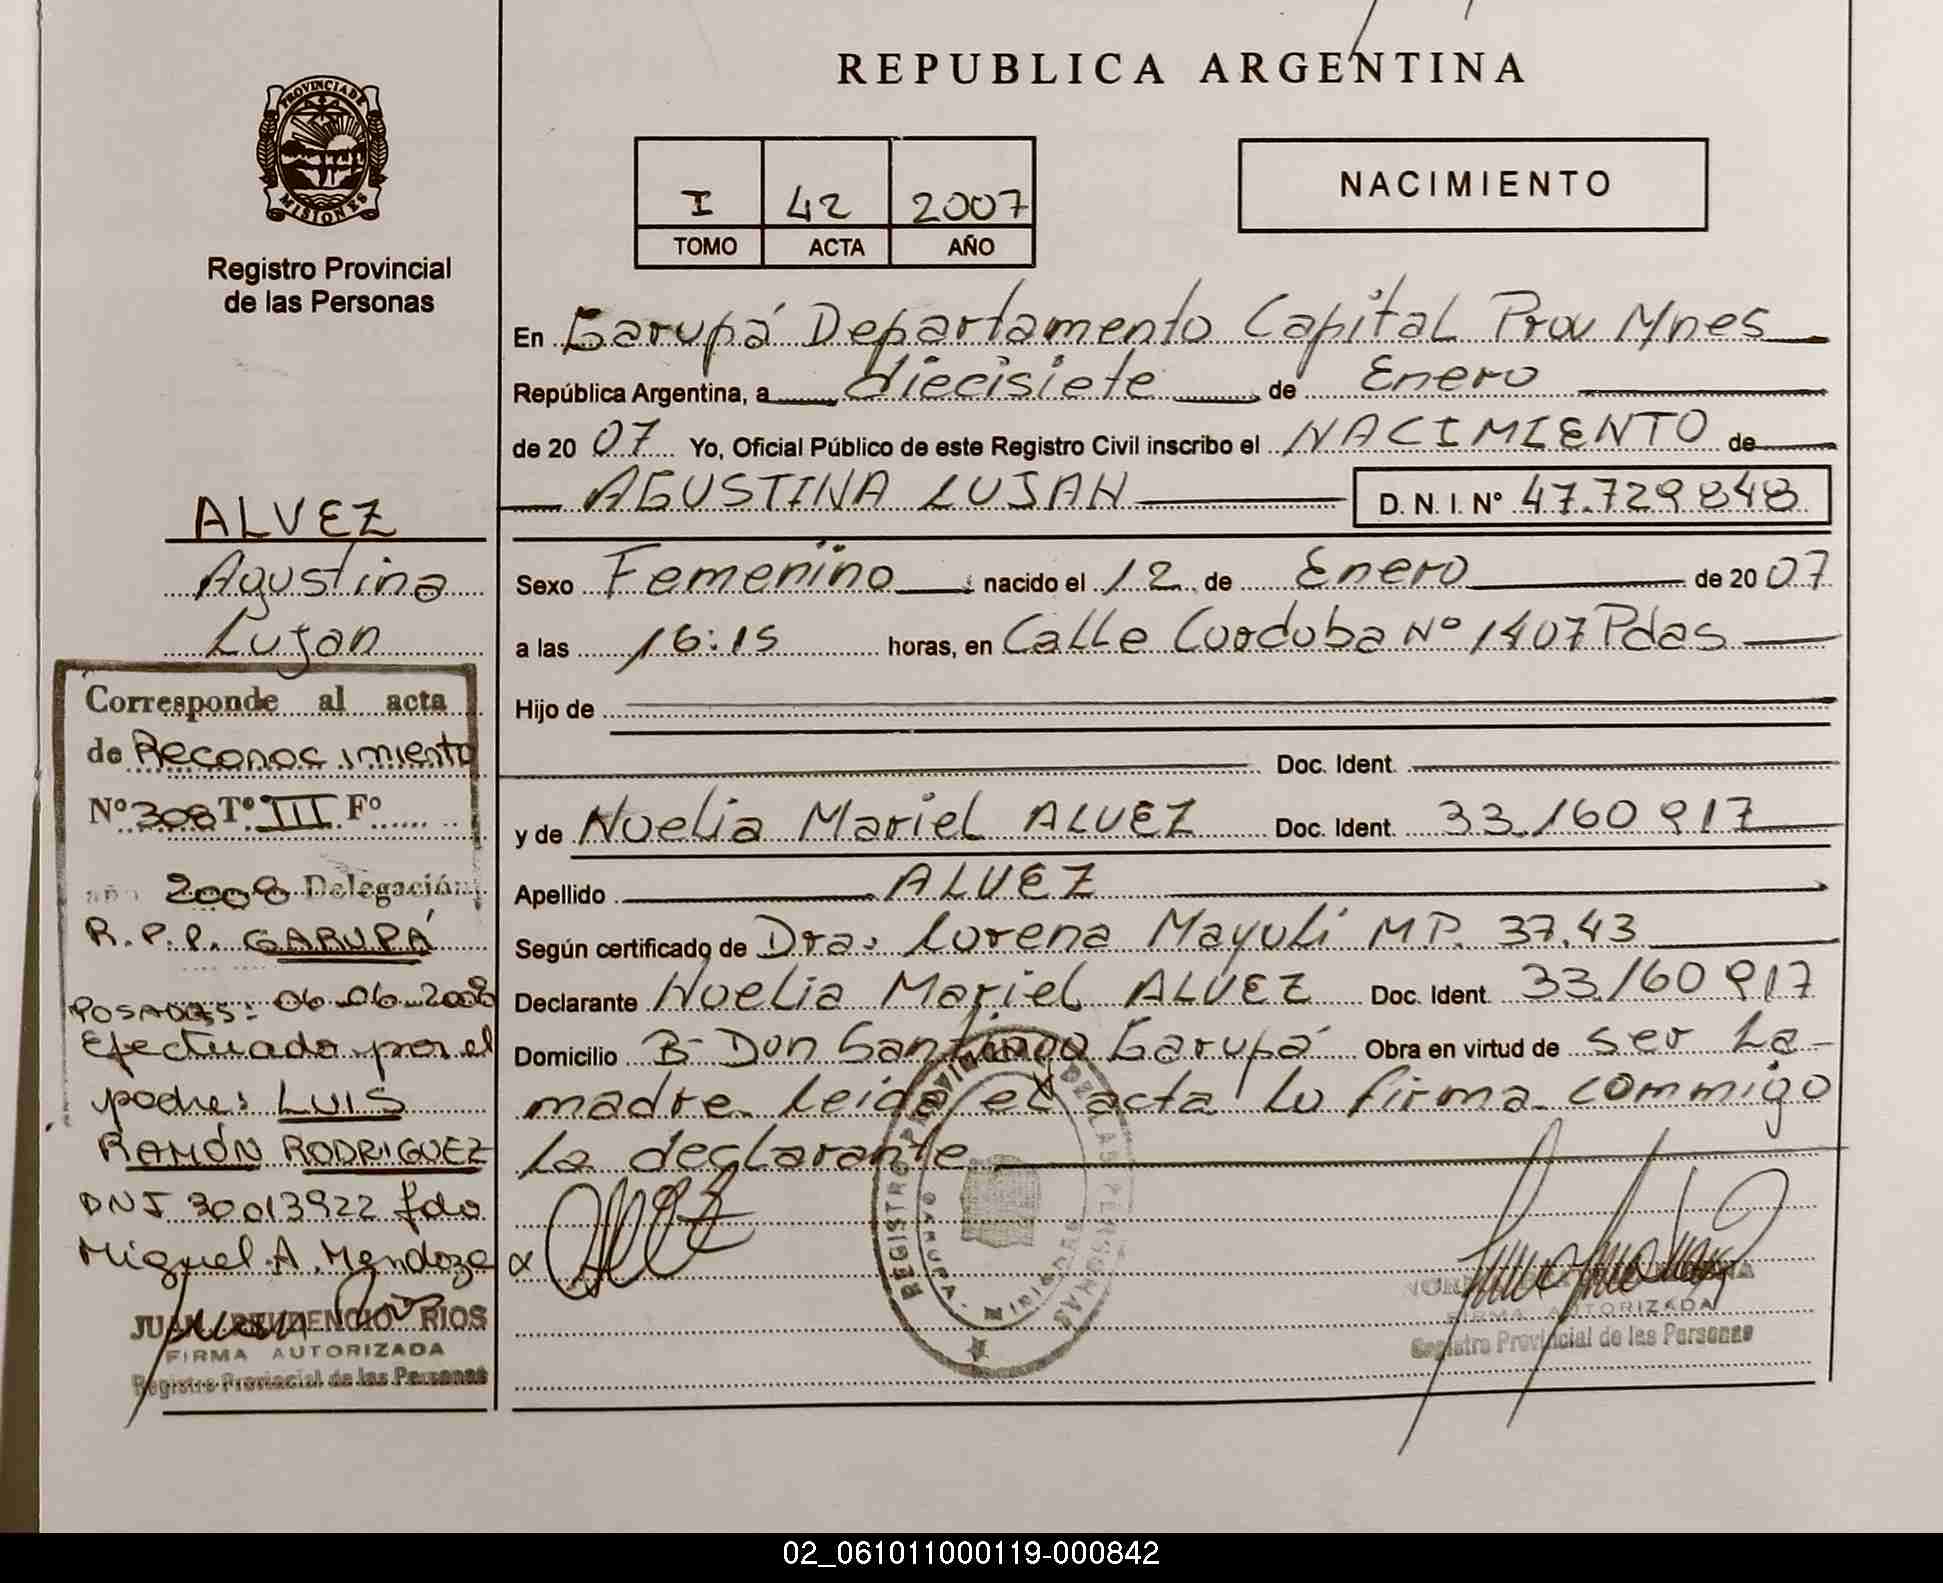 REPUBLICA ARGENTINA
PROVINCIA DE MISIONES
Registro Provincial
de las Personas
I 42 2007
TOMO ACTA AÑO
NACIMIENTO
En Garupá Departamento Capital Prov Mnes
República Argentina, a diecisiete de Enero
de 2007 Yo, Oficial Público de este Registro Civil inscribo el NACIMIENTO de
AGUSTINA LUJAN D. N. I. Nº 47.729848
Sexo Femenino nacido el 12 de Enero de 2007
a las 16:15 horas, en Calle Cordoba Nº 1407 Pdas
Hijo de
Doc. Ident.
y de Noelia Mariel ALVEZ Doc. Ident. 33.160917
Apellido ALVEZ
Según certificado de Dra. Lorena MP. 37.43
Declarante Noelia Mariel ALVEZ Doc. Ident. 33.160917
Domicilio Bº Don Santiago Garupá Obra en virtud de ser La
madre Leida el acta Lo firma commigo
La declarante
ALVEZ
Agustina
Lujan
Corresponde al acta
de Reconocimiento
Nº 308 Tº III Fº
año 2008 Delegación:
R.P.P. GARUPÁ
POSADAS: 06-06-2008
Efectuado por el
padre: LUIS
RAMÓN RODRIGUEZ
DNI 30013922 fdo
Miguel A. Mendoza
JUAN RIOS
FIRMA AUTORIZADA
Registro Provincial de las Personas
REGISTRO PROVINCIAL DE LAS PERSONAS
GARUPA - MISIONES
FIRMA AUTORIZADA
Registro Provincial de las Personas
02_061011000119-000842